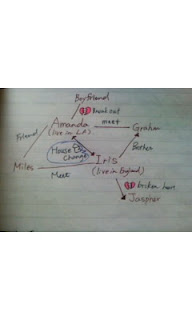 Boyfriend
knock out
Amanda
meet
Graham
(live in L.A)
Friend
House
change
Brother
Miles
Meet
Iris
(live in England)
broken heart
Jaspher